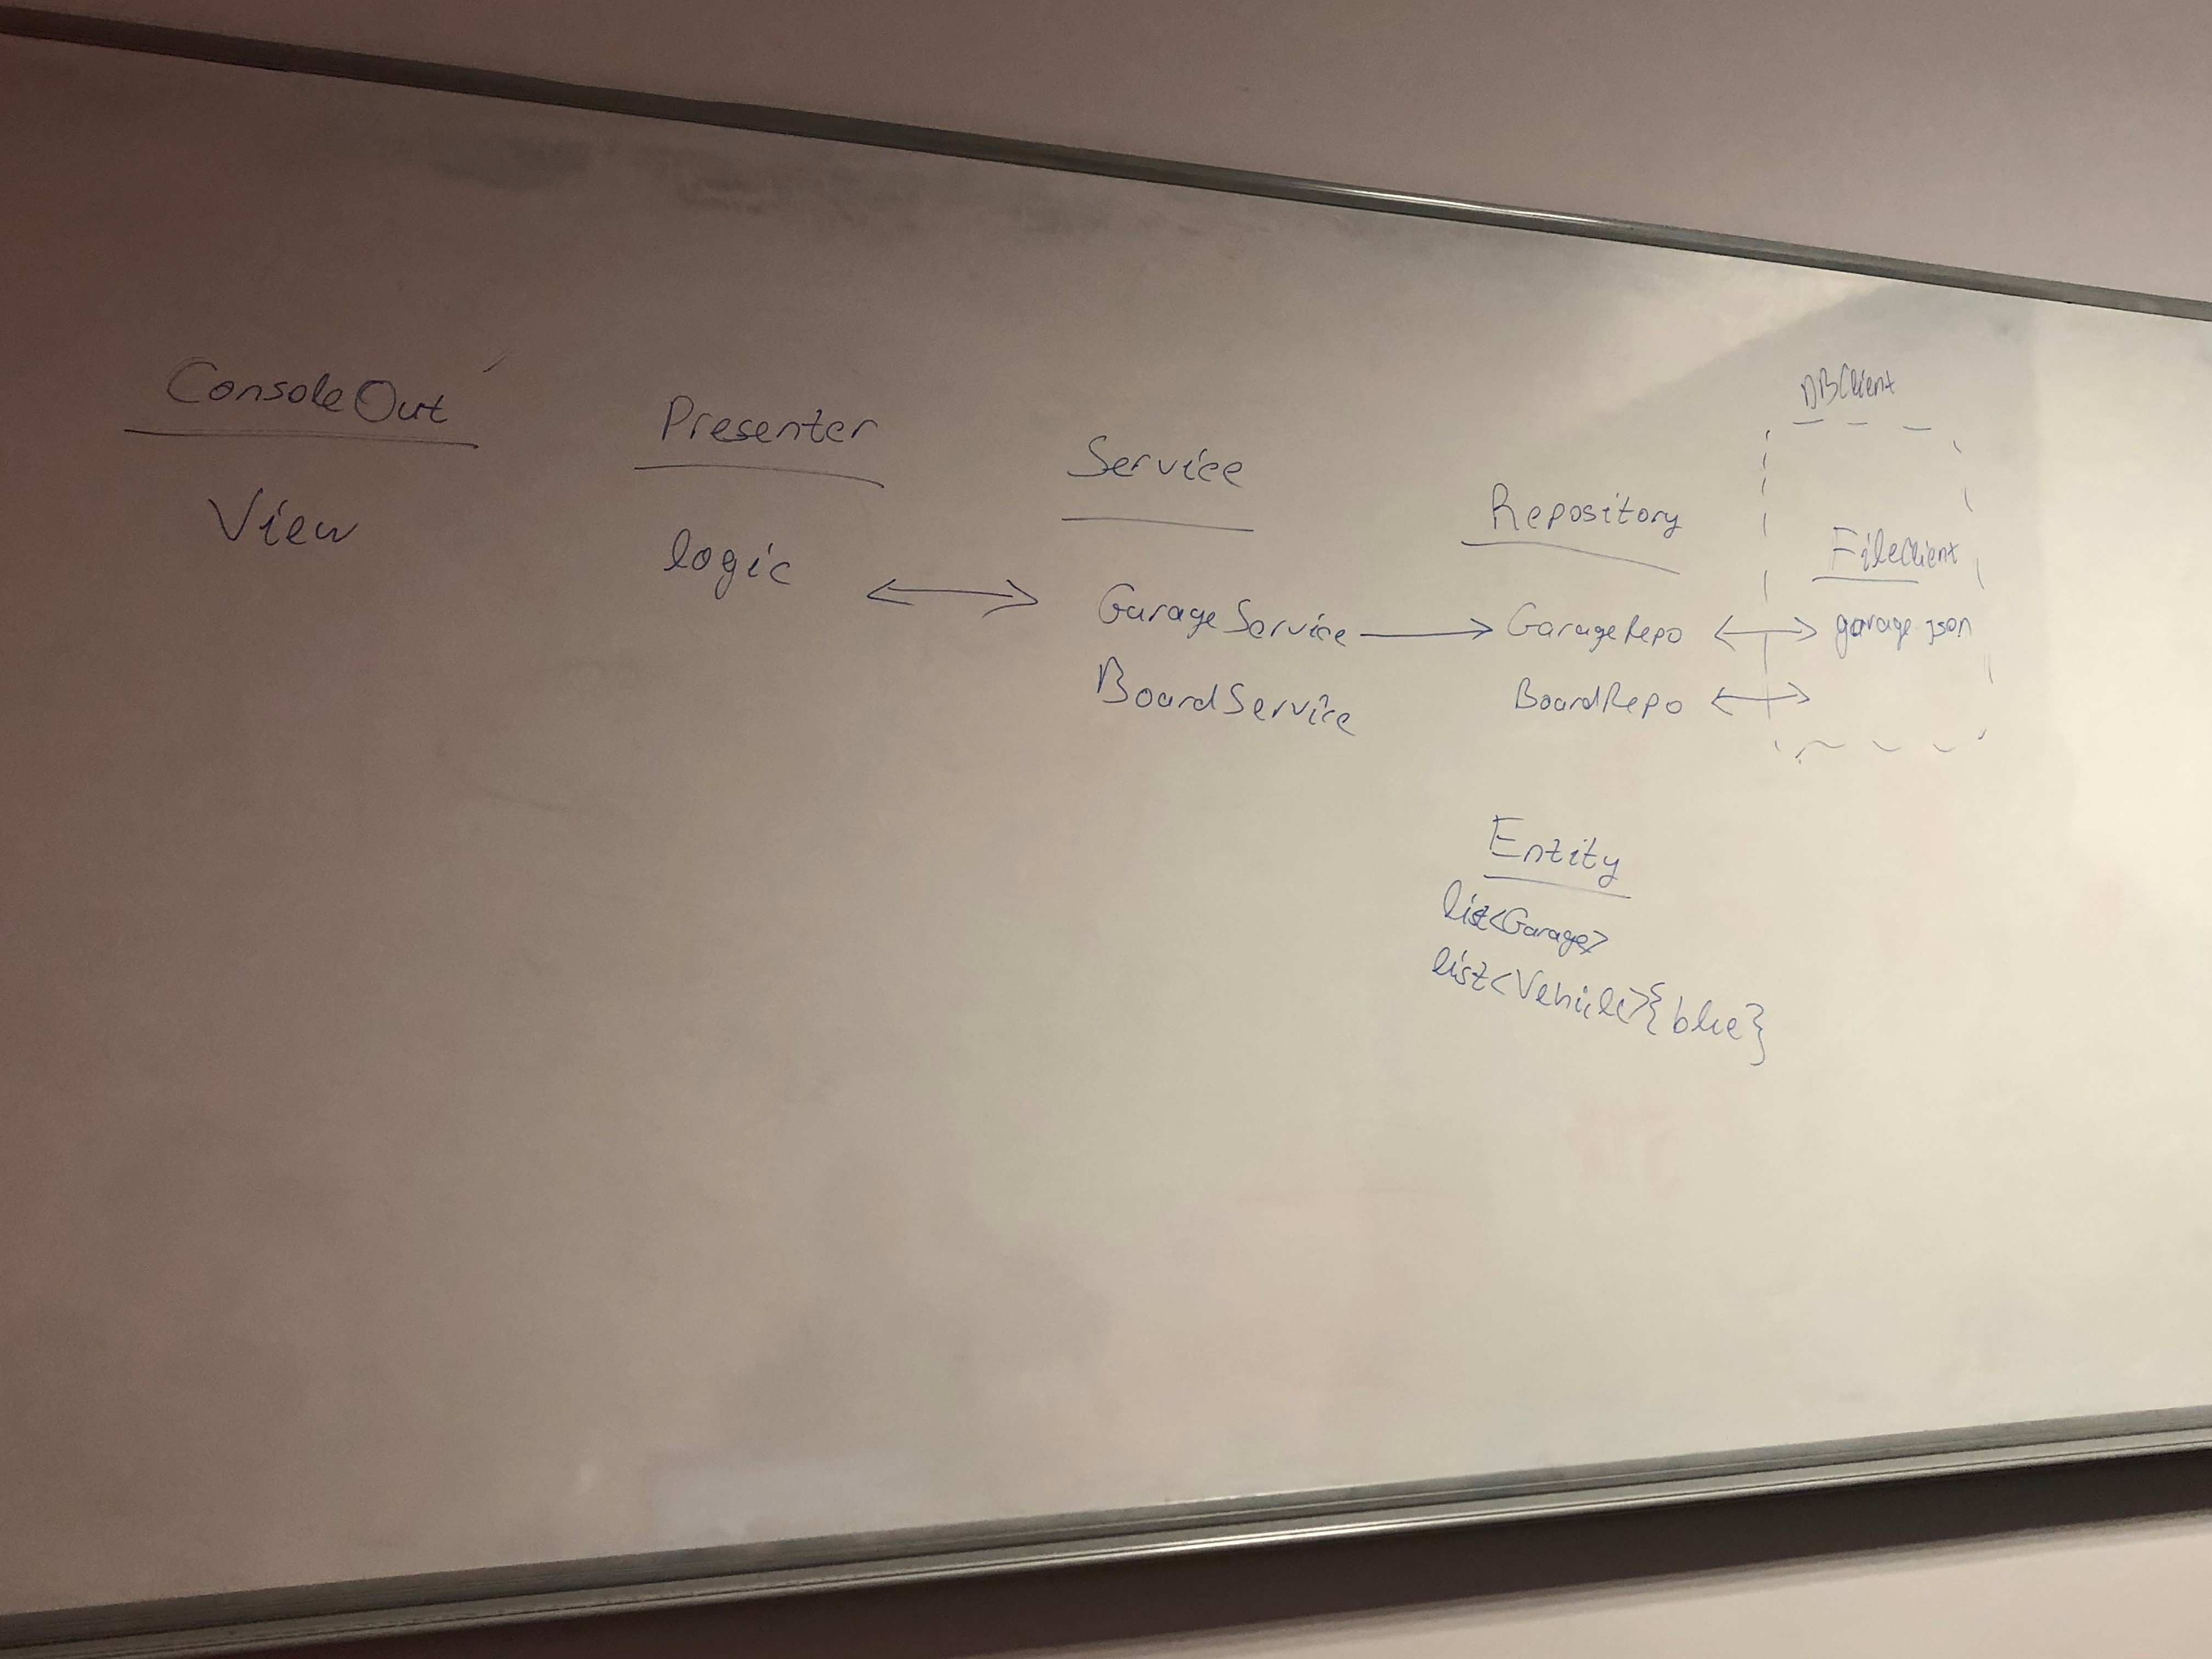 ConsoleOut
View
Presenter
logic
Service
GarageService
BoardService
Repository
GarageRepo
BoardRepo
DBClient
FileClient
garage.json
Entity
list<Garage>
list<Vehicle>{blue}